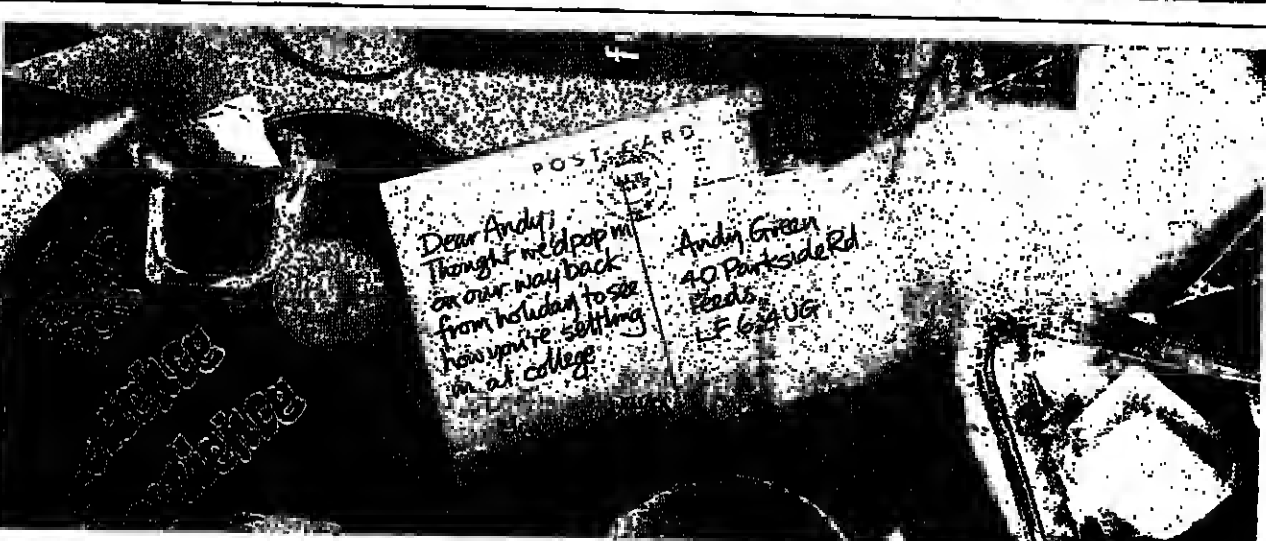 POST CARD
Dear Andy,
Thought we'd pop in
on our way back
from holiday to see
how you're settling
in at college
Andy Green
40 Parkside Rd
Leeds
LF6 34UG